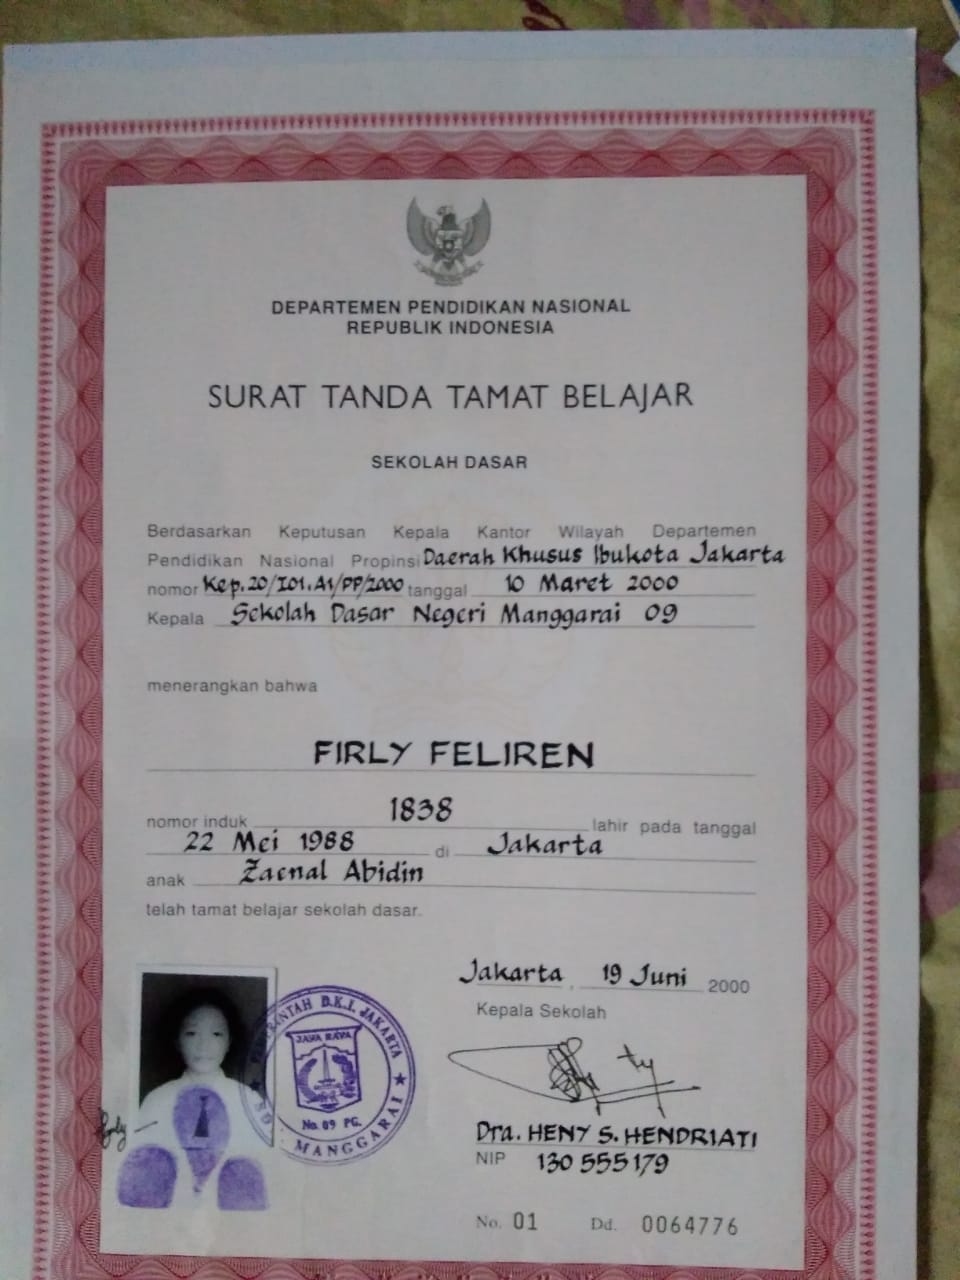 DEPARTEMEN PENDIDIKAN NASIONAL
REPUBLIK INDONESIA
SURAT TANDA TAMAT BELAJAR
SEKOLAH DASAR
Berdasarkan Keputusan Kepala Kantor Wilayah Departemen
Pendidikan Nasional Propinsi Daerah Khusus Ibukota Jakarta
nomor Kep.20/I01.A1/PP/2000 tanggal 10 Maret 2000
Kepala Sekolah Dasar Negeri Manggarai 09
menerangkan bahwa
FIRLY FELIREN
nomor induk 1838 lahir pada tanggal
22 Mei 1988 di Jakarta
anak Zaenal Abidin
telah tamat belajar sekolah dasar.
Jakarta, 19 Juni 2000
Kepala Sekolah
PEMERINTAH D.K.I. JAKARTA
JAYA RAYA
No. 09 PG.
SD. MANGGARAI
Dra. HENY S. HENDRIATI
NIP 130 555 179
No. 01 Dd. 0064776